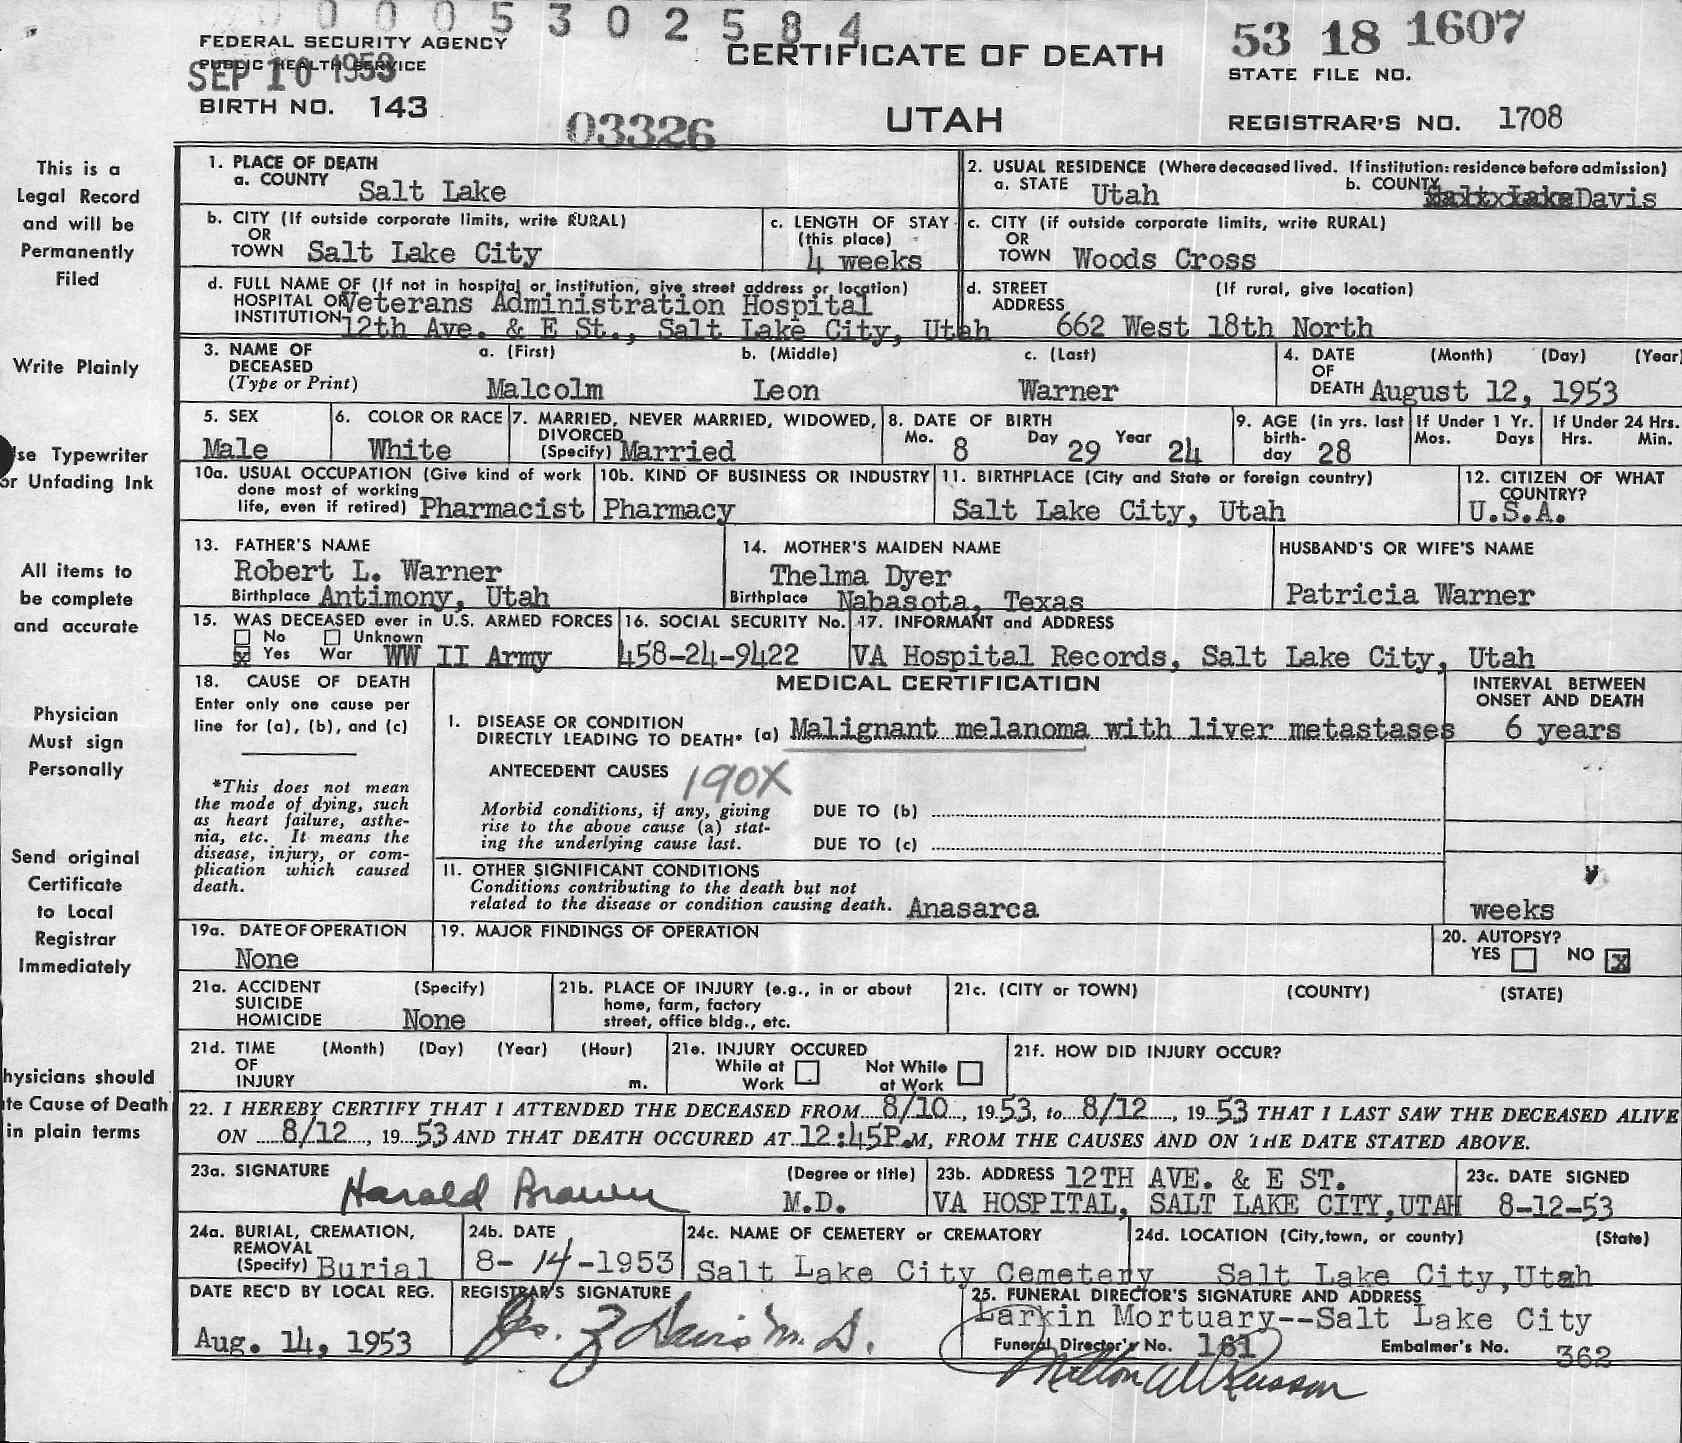 0 0 0 5 3 0 2 5 8 4
FEDERAL SECURITY AGENCY
PUBLIC HEALTH SERVICE
SEP 10 1953
BIRTH NO. 143
03326
CERTIFICATE OF DEATH
UTAH
53 18 1607
STATE FILE NO.
REGISTRAR'S NO. 1708
This is a
Legal Record
and will be
Permanently
Filed
Write Plainly
se Typewriter
or Unfading Ink
All items to
be complete
and accurate
Physician
Must sign
Personally
Send original
Certificate
to Local
Registrar
Immediately
hysicians should
te Cause of Death
in plain terms
1. PLACE OF DEATH
a. COUNTY Salt Lake
2. USUAL RESIDENCE (Where deceased lived. If institution: residence before admission)
a. STATE Utah b. COUNTY Salt Lake Davis
b. CITY (If outside corporate limits, write RURAL)
OR
TOWN Salt Lake City
c. LENGTH OF STAY
(this place)
4 weeks
c. CITY (if outside corporate limits, write RURAL)
OR
TOWN Woods Cross
d. FULL NAME OF (If not in hospital or institution, give street address or location)
HOSPITAL OR Veterans Administration Hospital
INSTITUTION 12th Ave. & E St., Salt Lake City, Utah
d. STREET (If rural, give location)
ADDRESS
662 West 18th North
3. NAME OF a. (First) b. (Middle) c. (Last)
DECEASED
(Type or Print) Malcolm Leon Warner
4. DATE (Month) (Day) (Year)
OF
DEATH August 12, 1953
5. SEX
Male
6. COLOR OR RACE
White
7. MARRIED, NEVER MARRIED, WIDOWED,
DIVORCED
(Specify) Married
8. DATE OF BIRTH
Mo. 8 Day 29 Year 24
9. AGE (in yrs. last
birth-
day 28
If Under 1 Yr.
Mos. Days
If Under 24 Hrs.
Hrs. Min.
10a. USUAL OCCUPATION (Give kind of work
done most of working
life, even if retired) Pharmacist
10b. KIND OF BUSINESS OR INDUSTRY
Pharmacy
11. BIRTHPLACE (City and State or foreign country)
Salt Lake City, Utah
12. CITIZEN OF WHAT
COUNTRY?
U.S.A.
13. FATHER'S NAME
Robert L. Warner
Birthplace Antimony, Utah
14. MOTHER'S MAIDEN NAME
Thelma Dyer
Birthplace Nabasota, Texas
HUSBAND'S OR WIFE'S NAME
Patricia Warner
15. WAS DECEASED ever in U.S. ARMED FORCES
No Unknown
x Yes War WW II Army
16. SOCIAL SECURITY No.
458-24-9422
17. INFORMANT and ADDRESS
VA Hospital Records, Salt Lake City, Utah
18. CAUSE OF DEATH
Enter only one cause per
line for (a), (b), and (c)
*This does not mean
the mode of dying, such
as heart failure, asthe-
nia, etc. It means the
disease, injury, or com-
plication which caused
death.
MEDICAL CERTIFICATION
INTERVAL BETWEEN
ONSET AND DEATH
I. DISEASE OR CONDITION
DIRECTLY LEADING TO DEATH* (a) Malignant melanoma with liver metastases 6 years
ANTECEDENT CAUSES 190X
Morbid conditions, if any, giving
rise to the above cause (a) stat-
ing the underlying cause last.
DUE TO (b)
DUE TO (c)
11. OTHER SIGNIFICANT CONDITIONS
Conditions contributing to the death but not
related to the disease or condition causing death. Anasarca weeks
19a. DATE OF OPERATION
None
19. MAJOR FINDINGS OF OPERATION
20. AUTOPSY?
YES NO x
21a. ACCIDENT (Specify)
SUICIDE
HOMICIDE None
21b. PLACE OF INJURY (e.g., in or about
home, farm, factory
street, office bldg., etc.
21c. (CITY or TOWN) (COUNTY) (STATE)
21d. TIME (Month) (Day) (Year) (Hour)
OF
INJURY m.
21e. INJURY OCCURED
While at Not While
Work at Work
21f. HOW DID INJURY OCCUR?
22. I HEREBY CERTIFY THAT I ATTENDED THE DECEASED FROM 8/10, 1953, to 8/12, 1953 THAT I LAST SAW THE DECEASED ALIVE
ON 8/12, 1953 AND THAT DEATH OCCURED AT 12:45P.M, FROM THE CAUSES AND ON THE DATE STATED ABOVE.
23a. SIGNATURE (Degree or title)
Harald Brown M.D.
23b. ADDRESS 12TH AVE. & E ST.
VA HOSPITAL, SALT LAKE CITY,UTAH
23c. DATE SIGNED
8-12-53
24a. BURIAL, CREMATION,
REMOVAL
(Specify) Burial
24b. DATE
8-14-1953
24c. NAME OF CEMETERY OR CREMATORY
Salt Lake City Cemetery
24d. LOCATION (City,town, or county) (State)
Salt Lake City,Utah
DATE REC'D BY LOCAL REG.
Aug. 14, 1953
REGISTRAR'S SIGNATURE
Jos. Z Davis M.D.
25. FUNERAL DIRECTOR'S SIGNATURE AND ADDRESS
Larkin Mortuary--Salt Lake City
Funeral Director's No. 161 Embalmer's No. 362
Milton W Russon